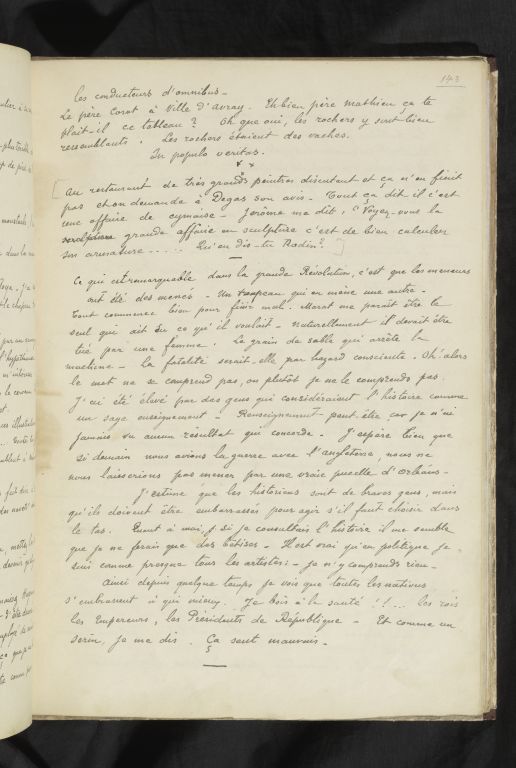 143
les conducteurs d'omnibus_
Le père Corot à Ville d'avray_ Eh bien père mathieu ça te
plait-il ce tableau? Oh que oui, les rochers y sont bien
ressemblants. Les rochers étaient des vaches.
In populo veritas.
[Au restaurant de très grands peintres discutent et ça n'en finit
pas et on demande à Degas son avis_ Tout ça dit il c'est
une affaire de cymaise_ Jérome me dit: "Voyez-vous la
grande affaire en sculpture c'est de bien calculer
son armature..... Qu'en dis-tu Rodin?]
Ce qui est remarquable dans la grande Révolution, c'est que les meneurs
ont été des menés_ Un troupeau qui en mène une autre_
Tout commence bien pour finir mal. Marat me parait être le
seul qui ait su ce qu'il voulait_ Naturellement il devait être
tué par une femme. Le grain de sable qui arrête la
machine_ La fatalité serait-elle par hazard consciente. Oh! alors
le mot ne se comprend pas, ou plutôt je ne le comprends pas.
J'ai été élevé par des gens qui considéraient l'histoire comme
un sage enseignement_ Renseignement peut-être, car je n'ai
jamais vu aucun résultat qui concorde_ J'espère bien que
si demain nous avions la guerre avec l'angleterre, nous ne
nous laisserions pas mener par une vraie pucelle d'Orléans_
J'estime que les historiens sont de braves gens, mais
qu'ils doivent être embarrassés pour agir s'il faut choisir dans
le tas. Quant à moi, si je consultais l'histoire il me semble
que je ne ferais que des bêtises_ Il est vrai qu'en politique je
suis comme presque tous les artistes:_ je n'y comprends rien_
Ainsi depuis quelque temps je vois que toutes les nations
s'embrassent à qui mieux. Je bois à ta santé!!... les rois
les Empereurs, les Présidents de République_ Et comme un
serin, je me dis. Ça sent mauvais_